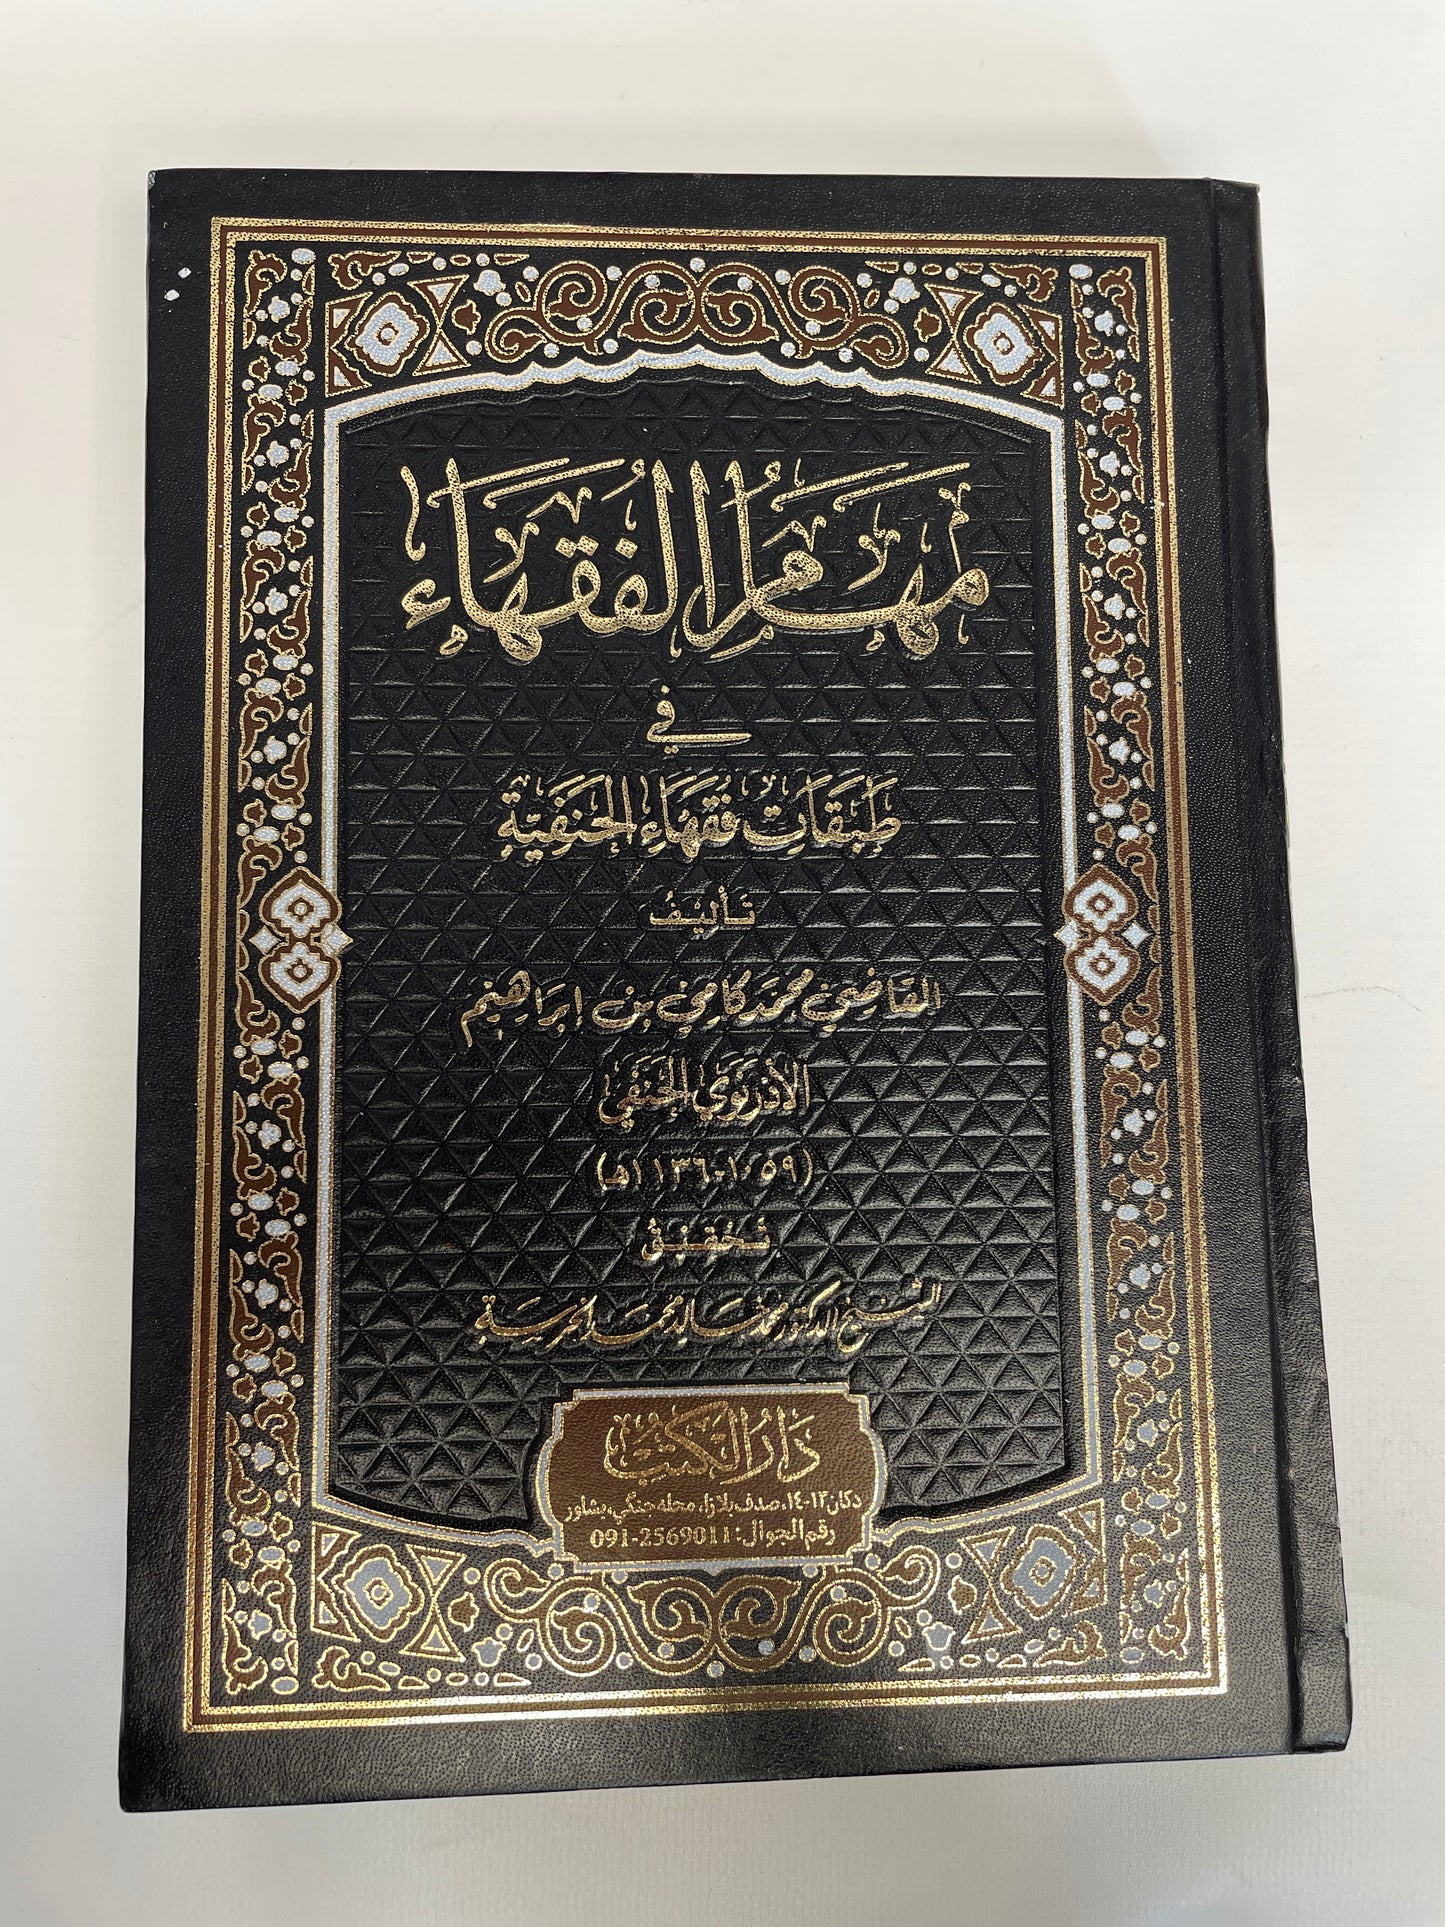 مَهَامُ الفُقَهَاءِ
في
طَبَقَاتِ فُقَهَاءِ الحَنَفِيَّةِ
تَأليفُ
القَاضِي مُحَمَّد كَامِي بن إبرَاهِيم
الأدْرنَوِي الحَنَفِي
(١٠٥٩-١١٣٦هـ)
تَحْقِيقُ
الشيخ الدكتور محمد خالد محمد الخرسة
دَارُ الكتب
دكان ١٣-١٤، صدف پلازا، محله جنگی، پشاور
رقم الجوال: 091-2569011